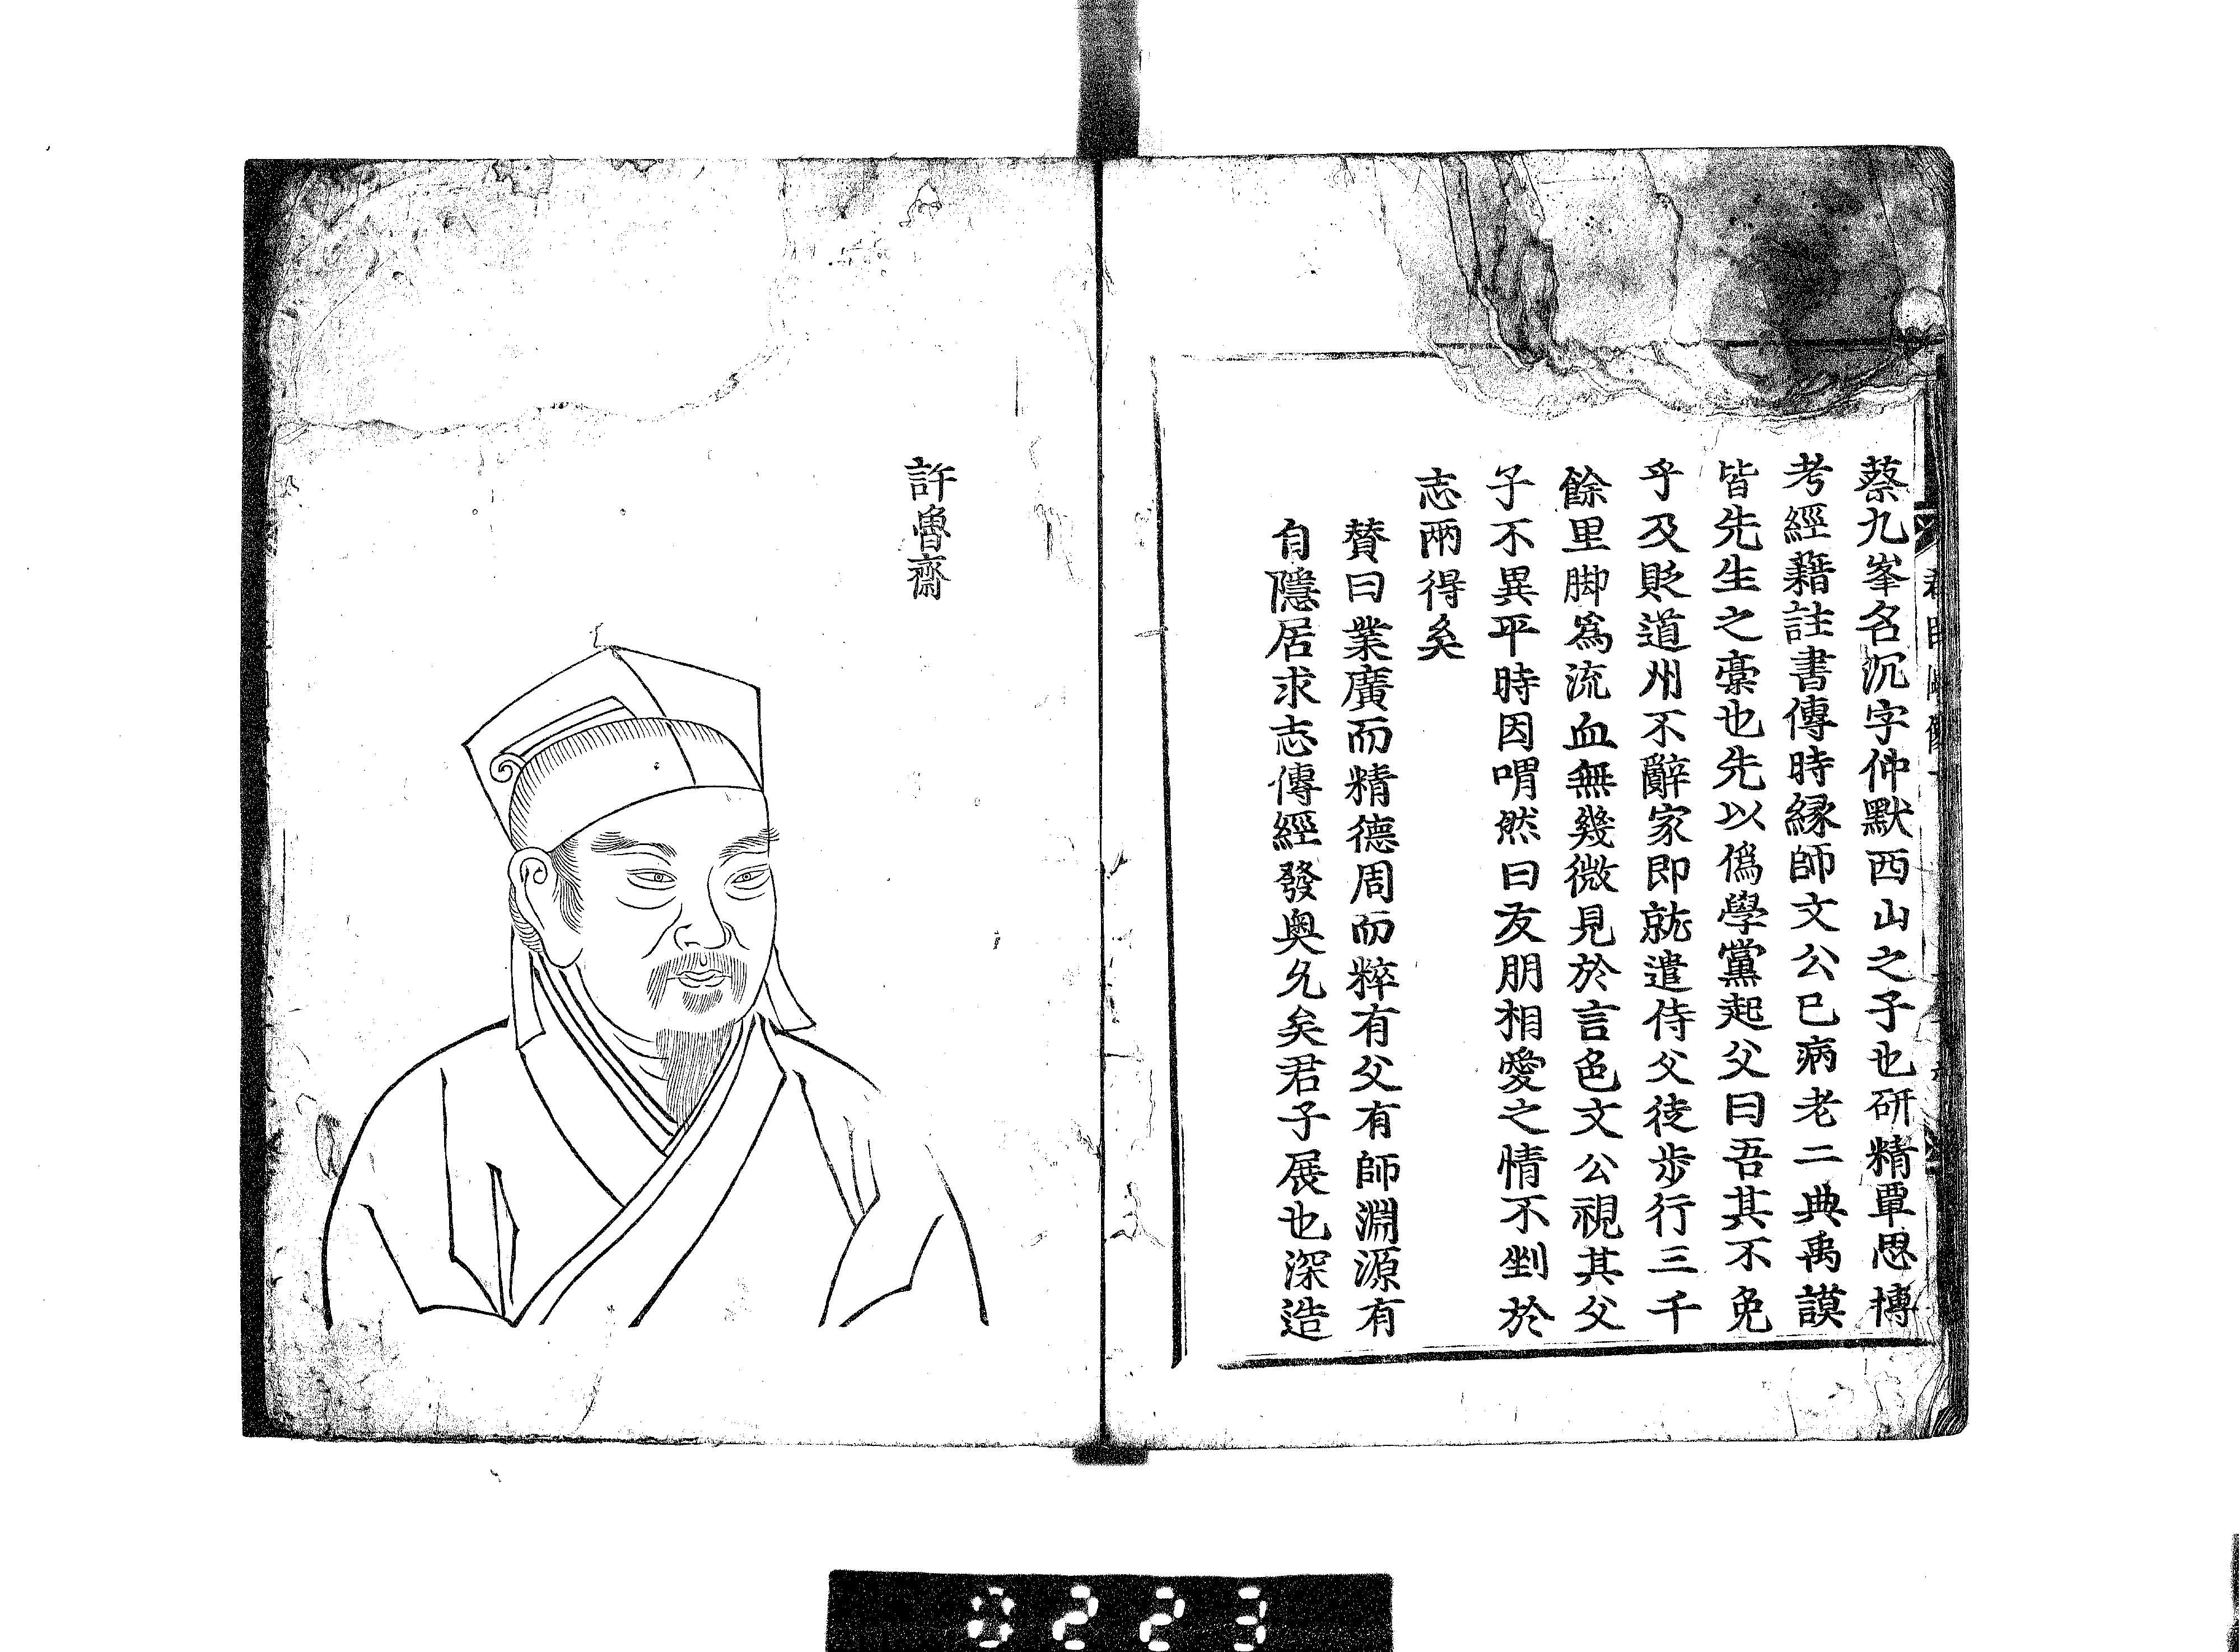 蔡九峯名沉字仲默西山之子也研精覃思博
考經籍註書傳時縁師文公已病老二典禹謨
皆先生之藁也先以僞學黨起父曰吾其不免
乎及貶道州不辭家即就遣侍父徒步行三千
餘里脚爲流血無幾微見於言色文公視其父
子不異平時因喟然曰友朋相愛之情不剉於
志兩得矣
賛曰業廣而精德周而粹有父有師淵源有
自隱居求志傳經發奥允矣君子展也深造
許魯齋
0223